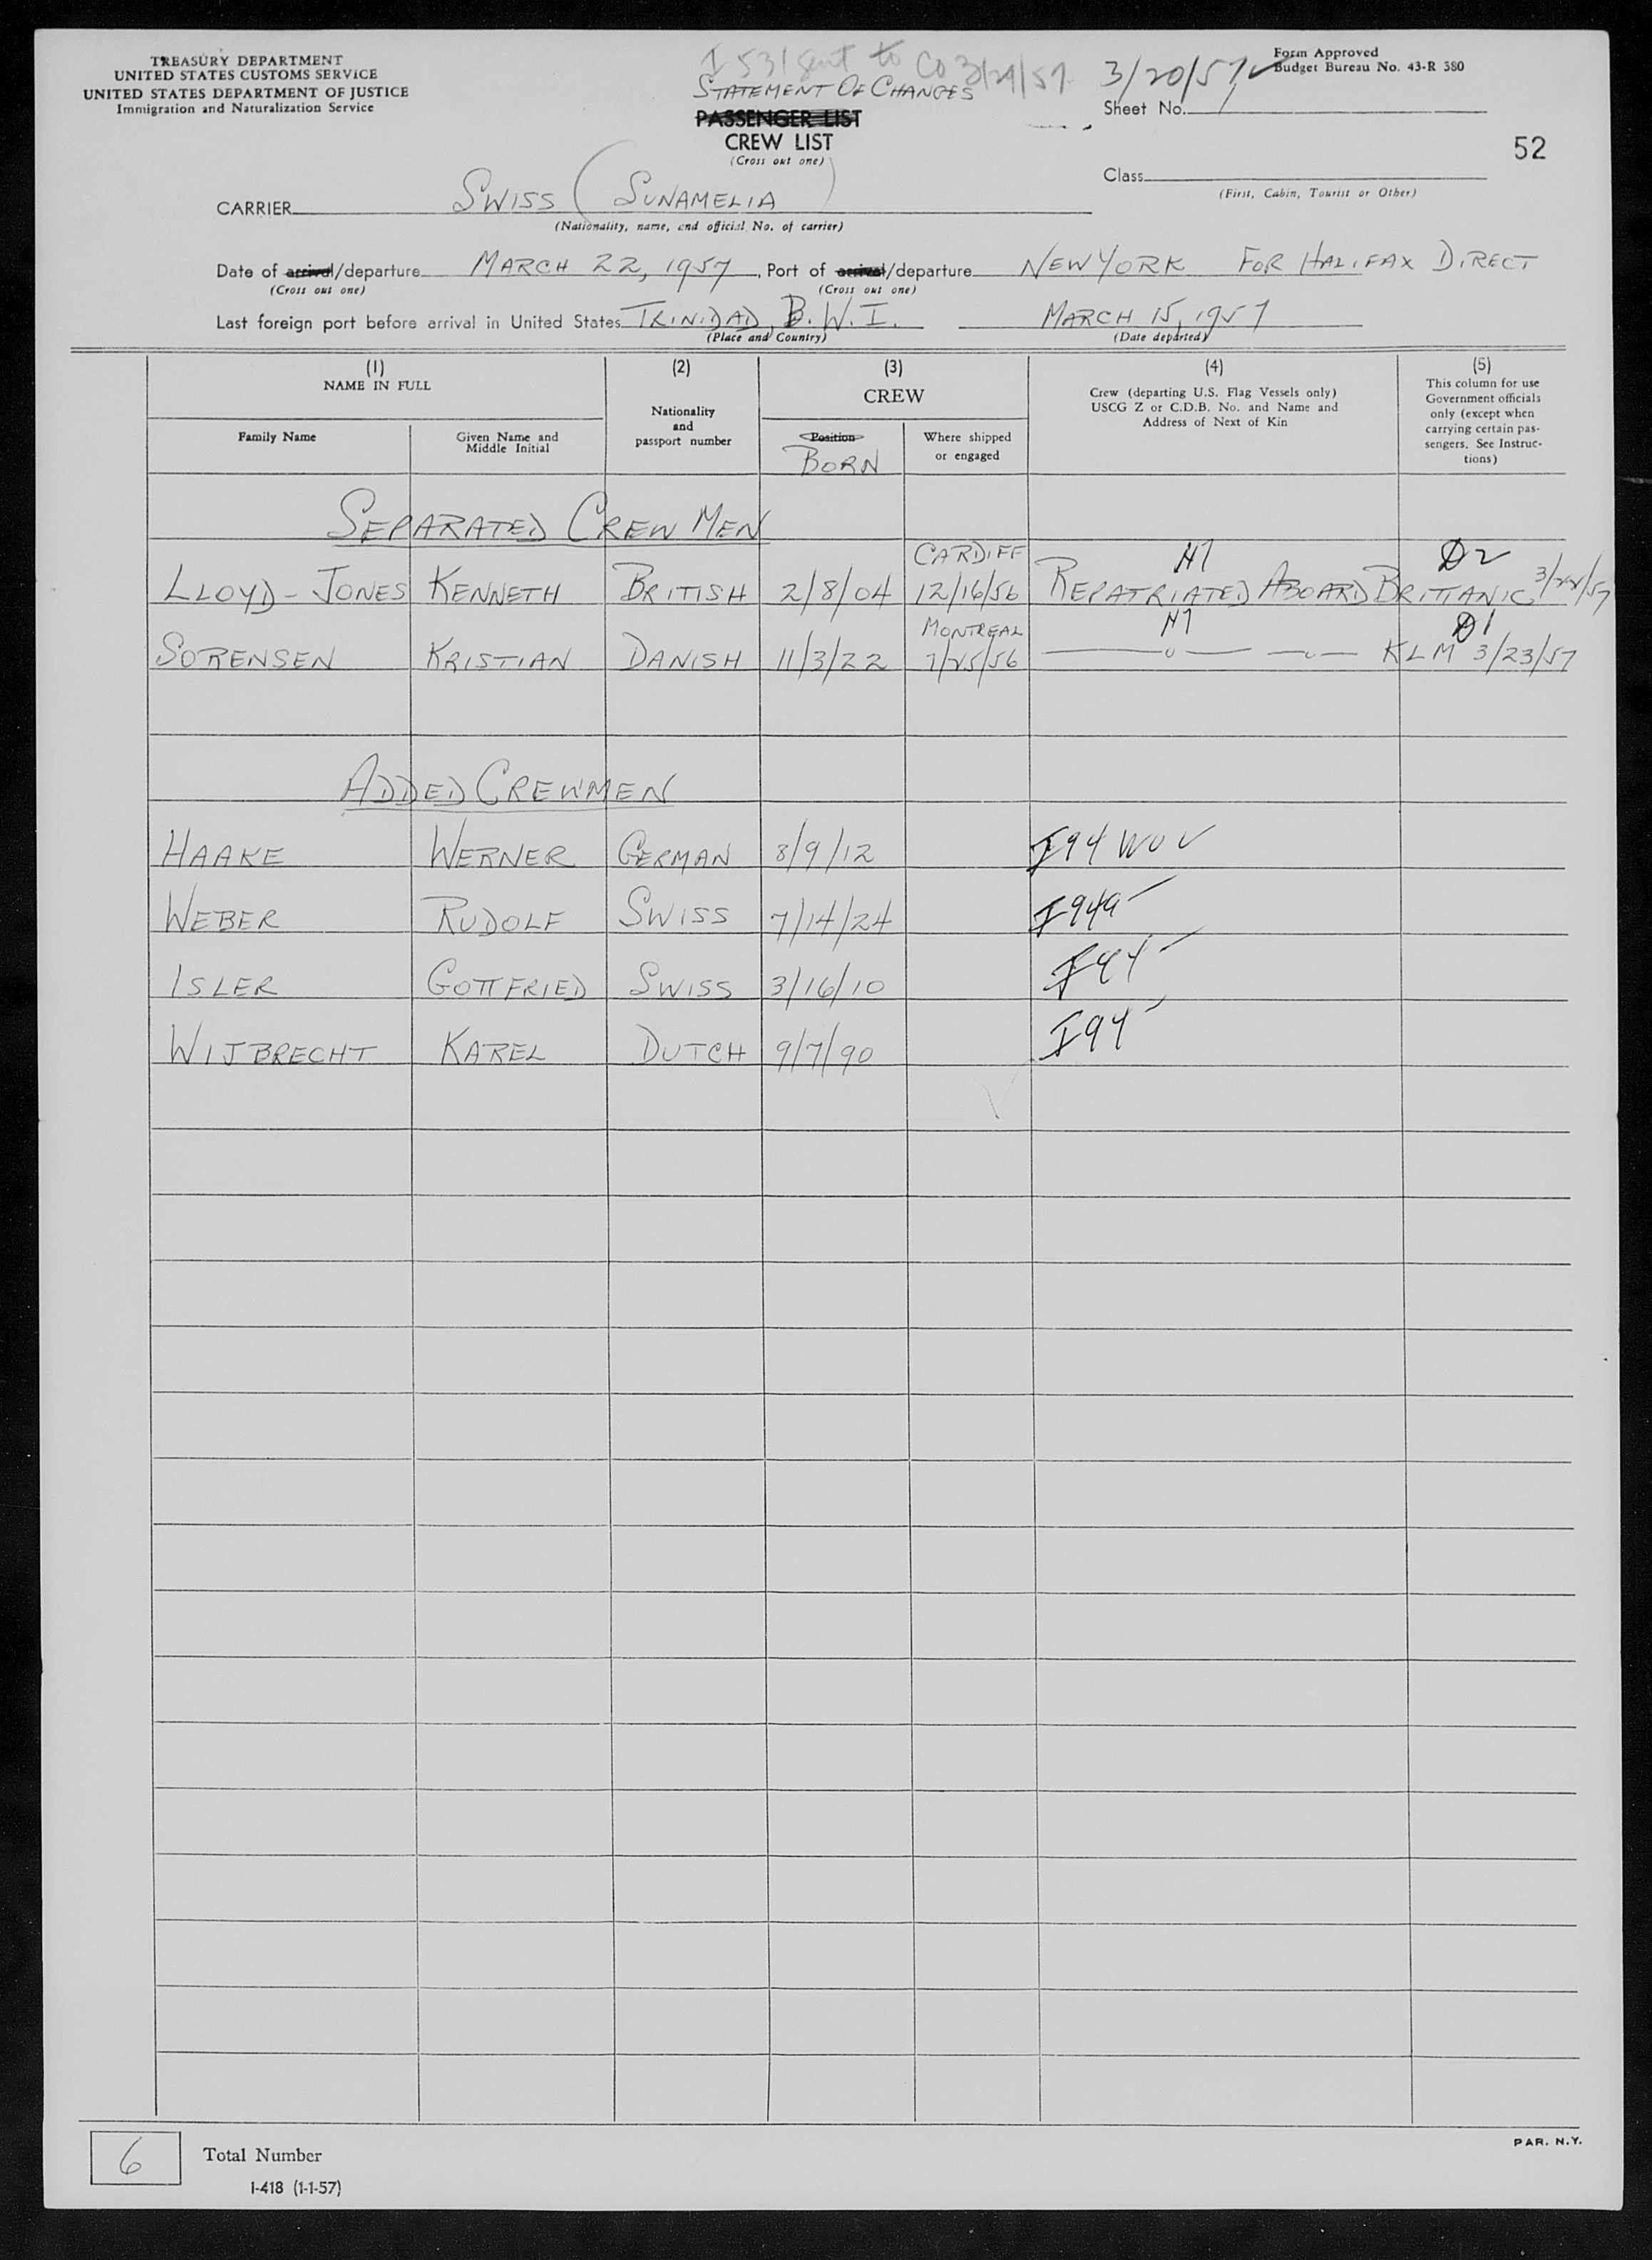 TREASURY DEPARTMENT
UNITED STATES CUSTOMS SERVICE
UNITED STATES DEPARTMENT OF JUSTICE
Immigration and Naturalization Service
I 531 sent to CO 3/29/57
STATEMENT OF CHANGES
PASSENGER LIST
CREW LIST
(Cross out one)
3/20/57
Form Approved
Budget Bureau No. 43-R 380
Sheet No. 1
52
Class
(First, Cabin, Tourist or Other)
CARRIER SWISS (SUNAMELIA)
(Nationality, name, and official No. of carrier)
Date of arrival/departure MARCH 22, 1957, Port of arrival/departure NEW YORK FOR HALIFAX DIRECT
(Cross out one) (Cross out one)
Last foreign port before arrival in United States TRINIDAD, B.W.I. MARCH 15, 1957
(Place and Country) (Date departed)
(1) (2) (3) (4) (5)
NAME IN FULL
Family Name
Given Name and
Middle Initial
Nationality
and
passport number
CREW
Position
BORN
Where shipped
or engaged
Crew (departing U.S. Flag Vessels only)
USCG Z or C.D.B. No. and Name and
Address of Next of Kin
This column for use
Government officials
only (except when
carrying certain pas-
sengers. See Instruc-
tions)
SEPARATED CREW MEN
CARDIFF D2
LLOYD-JONES KENNETH BRITISH 2/8/04 12/16/56 REPATRIATED ABOARD BRITTANIC
MONTREAL D1
SORENSEN KRISTIAN DANISH 11/3/22 7/25/56 KLM 3/23/57
ADDED CREWMEN
HAAKE WERNER GERMAN 8/9/12 I94 WOV
WEBER RUDOLF SWISS 7/14/24 I94a
ISLER GOTTFRIED SWISS 3/16/10 I94
WIJBRECHT KAREL DUTCH 9/7/90 I94
6 Total Number
I-418 (1-1-57)
PAR. N.Y.